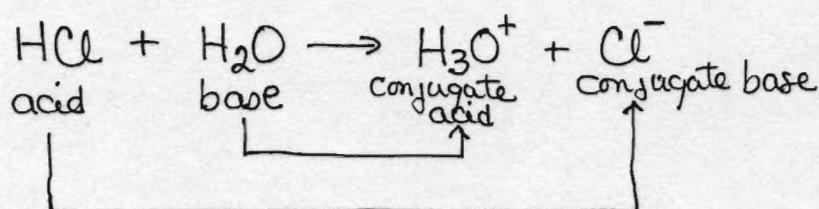 HCl + H₂O → H₃O⁺ + Cl⁻
acid base conjugate acid conjugate base